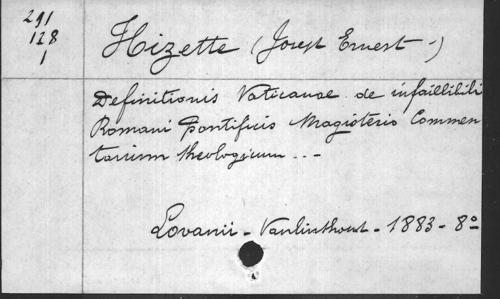 291
128
1
Hizette (Josep Ernest -)
Definitionis Vaticanae de infaillibili
Romani Pontificis Magisterio Commen
tarium theologicum ...
Lovanii - Vanlinthout - 1883 - 8º